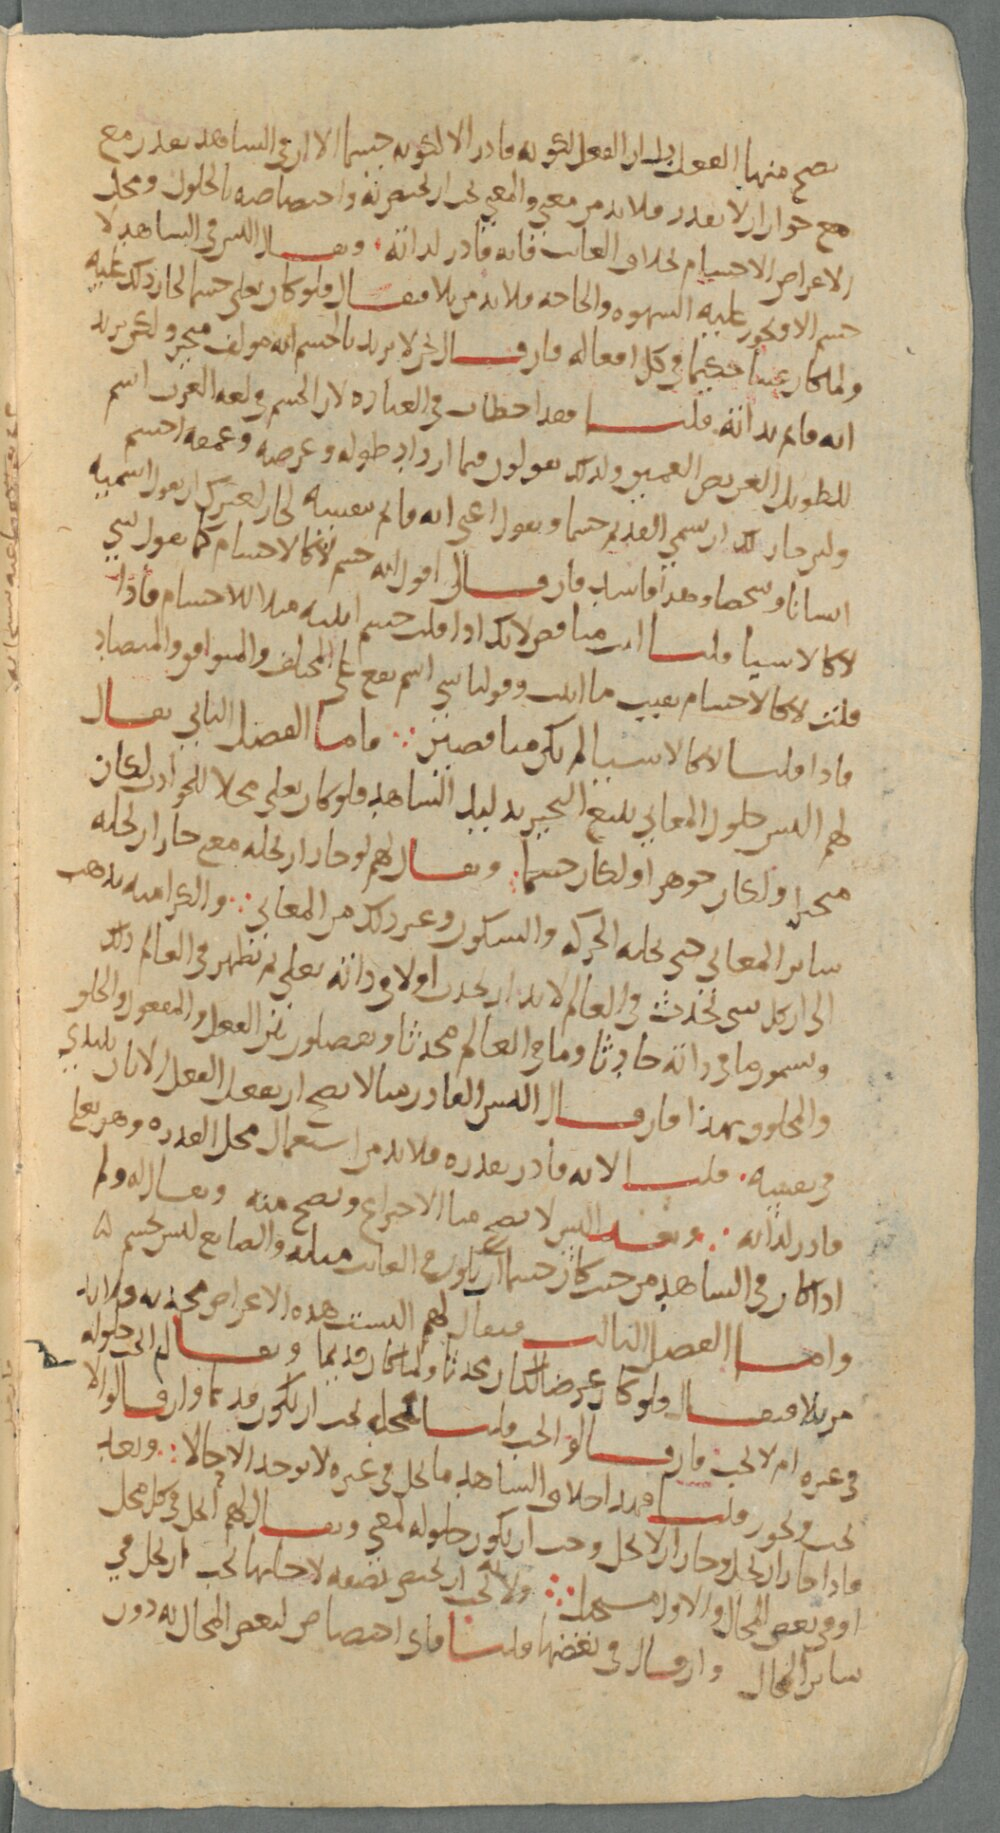 يصح منها الفعل بل ان الفعل لكونه قادرا لا لكونه جسما الا ان في الشاهد يقدر مع
مع جواز ان لا يقدر فلا بد من معنى والمعنى يجب ان يختص به واختصاصه بالحلول ومحل
الاعراض الاجسام بخلاف الغائب فانه قادر لذاته ويقال اليس في الشاهد لا
جسم الا ويجوز عليه الشهوة والحاجة فلا بد من بلى فيقال فلو كان تعالى جسما لجاز ذلك عليه
ولما كان غنيا حكيما في كل افعاله فان قال نحن لا نريد بالجسم انه مؤلف متحيز ولكن نريد
انه قائم بذاته قلنا فقد اخطأت في العبارة لان الجسم في لغة العرب اسم
للطويل العريض العميق ولذلك يقولون فيما ازداد طوله وعرضه وعمقه اجسم
ولئن جاز لك ان تسمي القديم جسما وتقول اعني انه قائم بنفسه لجاز لغيرك ان يقول اسميه
انسانا وشخصا وهذا فاسد فان قال اقول انه جسم لا كالاجسام كما نقول شيء
لا كالاشياء قلنا انت مناقض لانك اذا قلت جسم اثبته مثلا للاجسام فاذا
قلت لا كالاجسام نفيت ما اثبت وقولنا شيء اسم يقع على المختلف والمتوافق والمتضاد
فاذا قلنا لا كالاشياء لم نكن مناقضين واما الفصل الثاني يقال
لهم اليس حلول المعاني يتبع التحيز بدليل الشاهد فلو كان تعالى محلا للحوادث لكان
متحيزا ولكان جوهرا ولكان جسما ويقال لهم لو جاز ان يحله معنى جاز ان يحله
سائر المعاني حتى يحله الحركة والسكون وغير ذلك من المعاني والكرامية تذهب
الى ان كل شيء يحدث في العالم لا بد ان يحدث اولا في ذاته تعالى ثم يظهر في العالم ذلك
ويسمون ما في ذاته حادثا وما في العالم محدثا ويفصلون بين الفعل والمفعول والخلق
والمخلوق بهذا فان قال اليس القادر منا لا يصح ان يفعل الفعل الا بان يبتدي
في نفسه قلنا لانه قادر بقدرة فلا بد من استعمال محل القدرة وهو تعالى
قادر لذاته وبعد اليس لا يصح منا الاختراع ويصح منه ويقال له ولم
اذا كان في الشاهد من حيث كان جسما ان يكون في الغائب مثله والصانع ليس بجسم
واما الفصل الثالث فيقال لهم اليست هذه الاعراض محدثة فلا بد
من بلى فيقال ولو كان عرضا لكان محدثا ولما كان قديما ويقال لهم الى حلوله
في غيره ام لا يجب فان قالوا يجب قلنا فمحله يجب ان يكون قديما وان قالوا لا
يجب ويجوز قلنا فهذا خلاف الشاهد ما يحل في غيره لا يوجد الا حالا وبعد
فاذا جاز ان يحل وجاز ان لا يحل وجب ان يكون حلوله لمعنى ويقال لهم ايحل في كل محل
او في بعض المحال والاول مستحيل ولانه يجب ان يختص بصفة لاجلها يجب ان يحل في
سائر المحال وان قال في بعضها قلنا فاي اختصاص لبعض المحال به دون